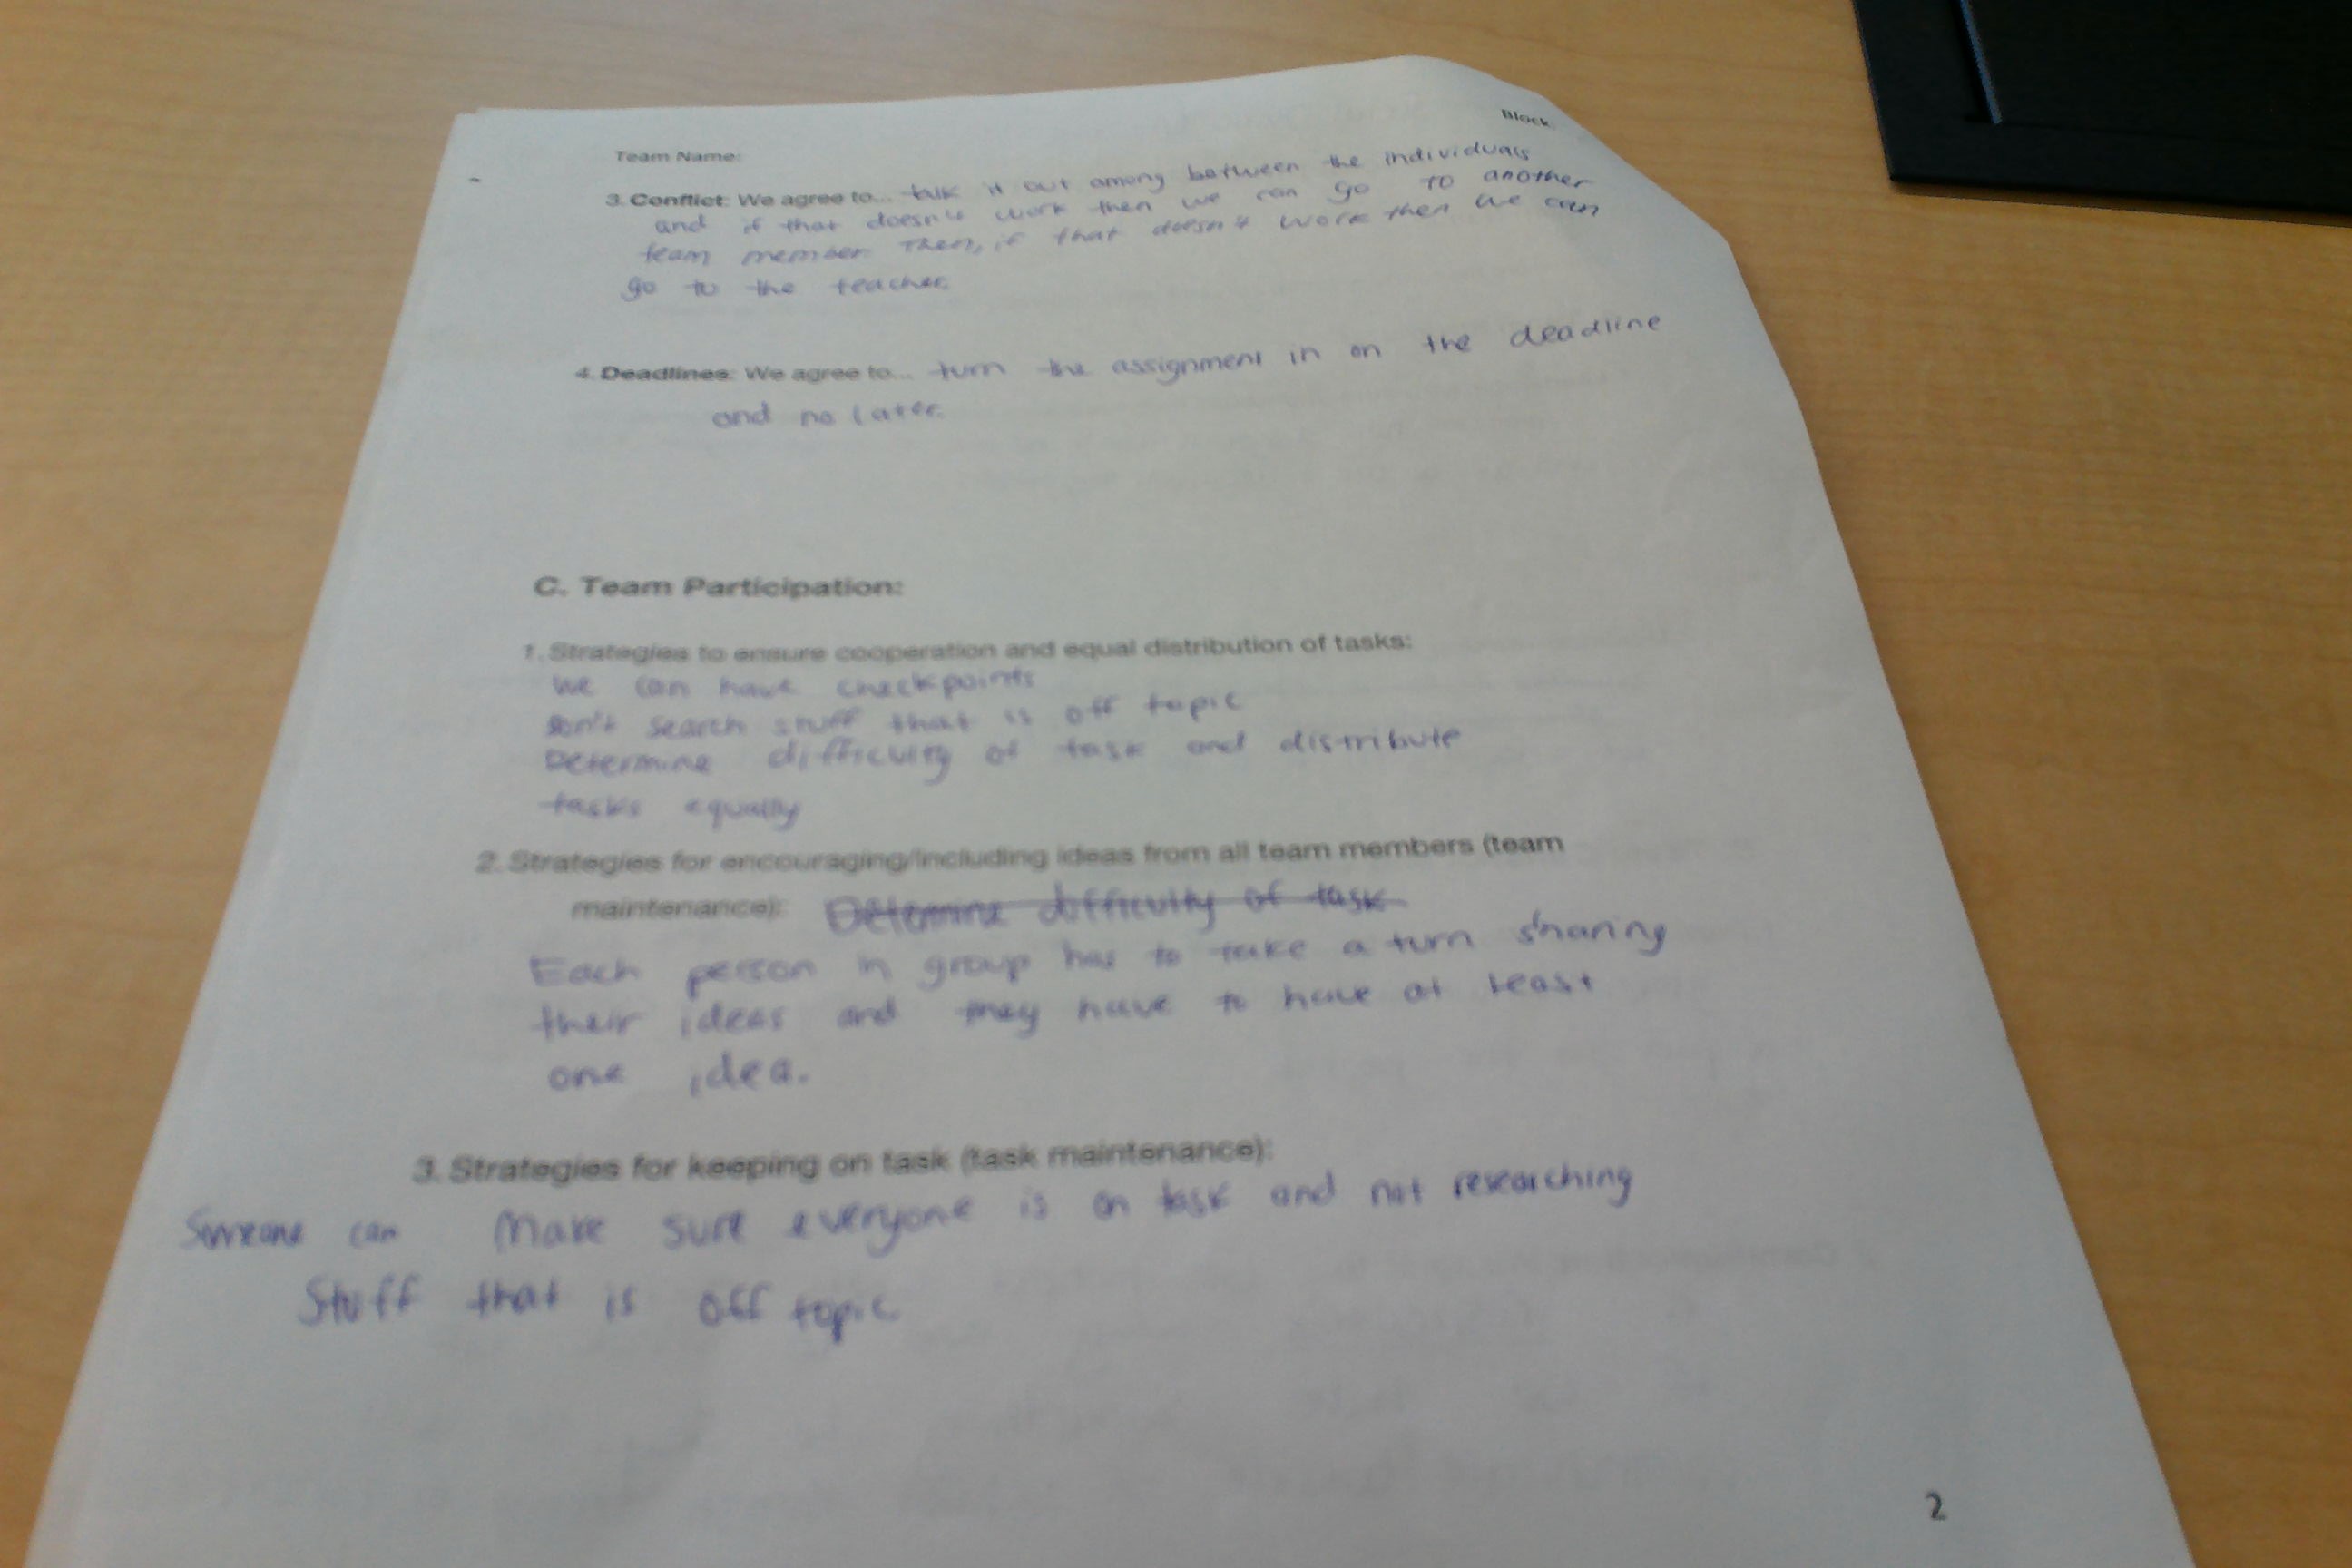 Block:
Team Name:
3. Conflict: We agree to... talk it out among between the individuals
and if that doesn't work then we can go to another
team member. Then, if that doesn't work then we can
go to the teacher.
4. Deadlines: We agree to... turn the assignment in on the deadline
and no later.
C. Team Participation:
1. Strategies to ensure cooperation and equal distribution of tasks:
We can have checkpoints
Don't search stuff that is off topic
Determine difficulty of task and distribute
tasks equally
2. Strategies for encouraging/including ideas from all team members (team
maintenance): Determine difficulty of task
Each person in group has to take a turn sharing
their ideas and they have to have at least
one idea.
3. Strategies for keeping on task (task maintenance):
Someone can make sure everyone is on task and not researching
Stuff that is off topic
2